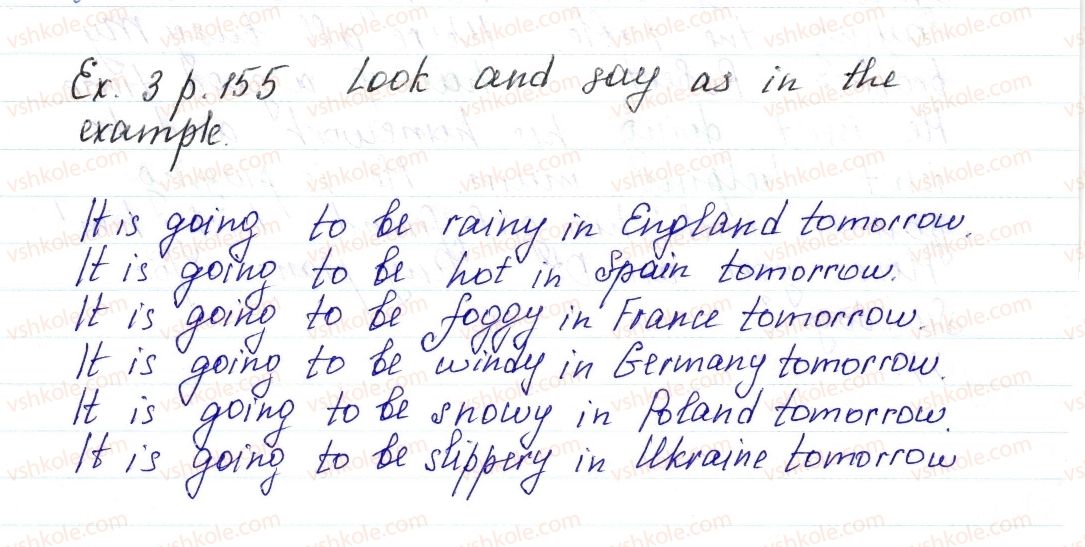 Ex. 3 p. 155 Look and say as in the
example.
It is going to be rainy in England tomorrow.
It is going to be hot in Spain tomorrow.
It is going to be foggy in France tomorrow.
It is going to be windy in Germany tomorrow.
It is going to be snowy in Poland tomorrow.
It is going to be slippery in Ukraine tomorrow
vshkole.com